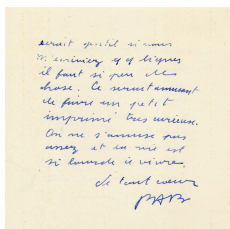 serait gentil si vous
m'écriviez qq lignes
il faut si peu de
chose. Ce serait amusant
de faire un petit
imprimé très curieux.
On ne s'amuse pas
assez et la vie est
si lourde à vivre.
de tout cœur